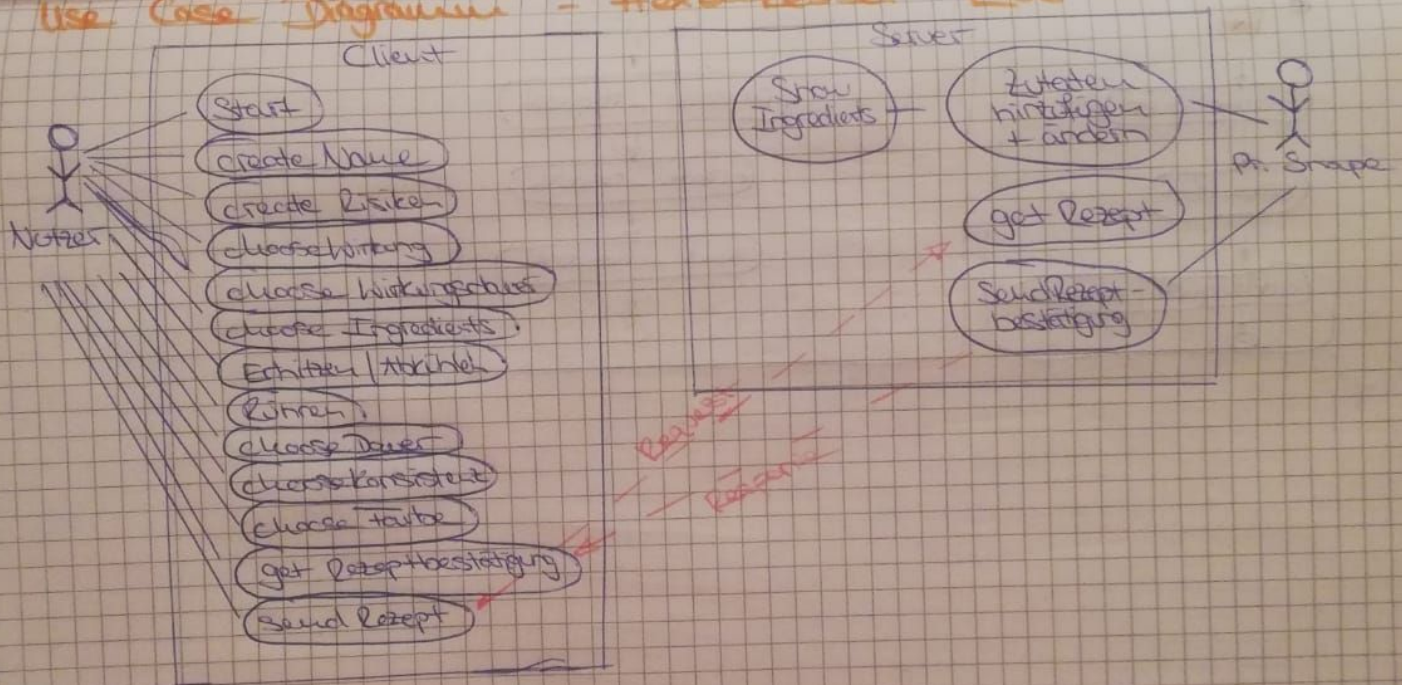 Use Case Diagramm -
Client
Start
create Name
create Risiken
choose Wirkung
choose Wirkungsdauer
choose Ingredients
Erhitzen / Abkühlen
Rühren
choose Dauer
choose Konsistenz
choose Farbe
get Rezeptbestätigung
send Rezept
Nutzer
Server
Show
Ingredients
Zutaten
hinzufügen
+ ändern
get Rezept
Send Rezept-
bestätigung
Pr. Snape
Request
Response